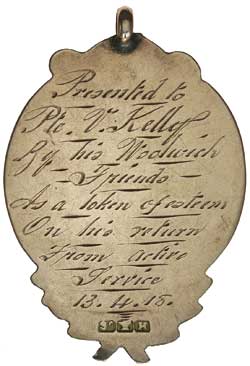 Presented to
Pte. V. Kelly
By his Woolwich
Friends
As a Token of esteem
On his return
From active
Service
13.4.15.